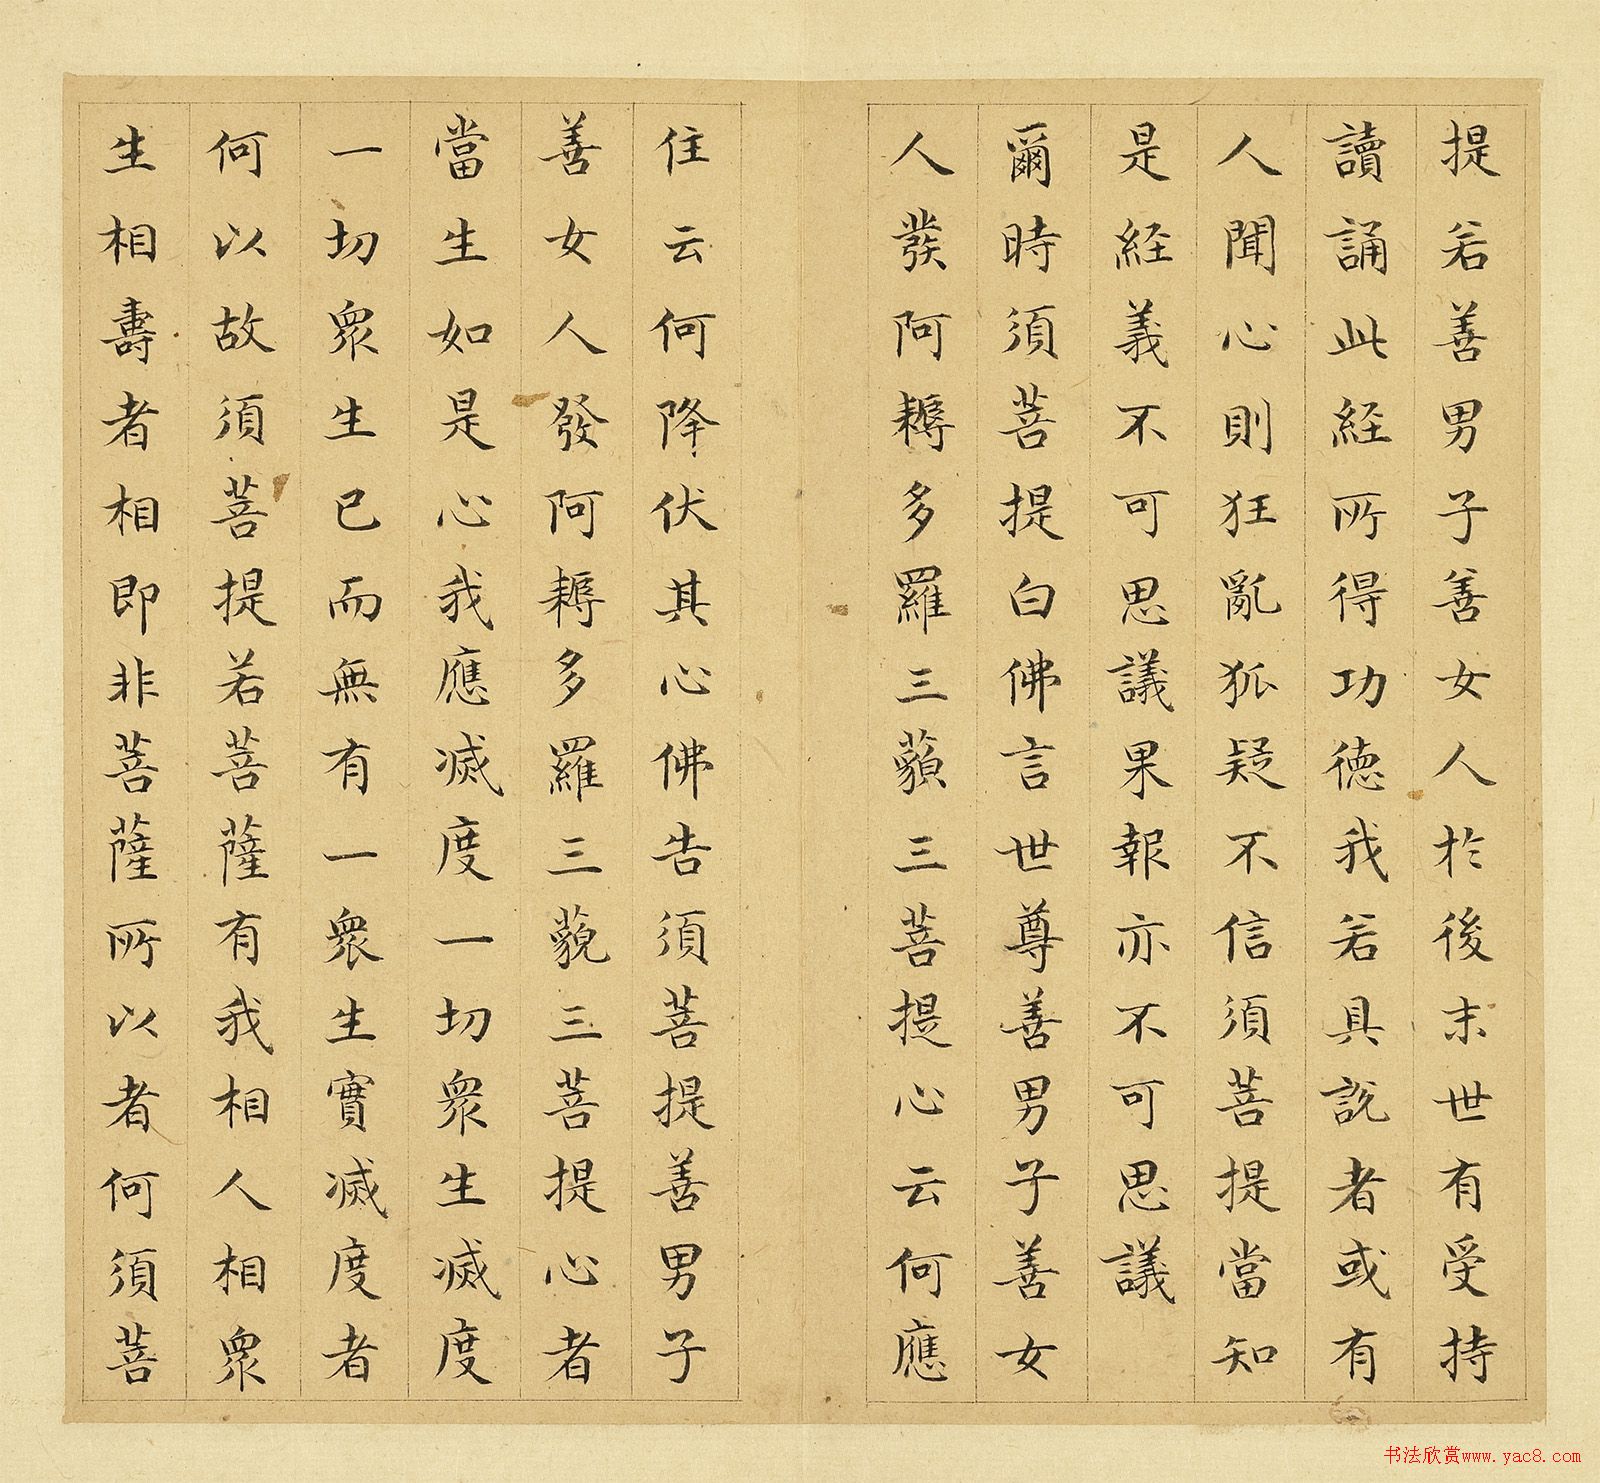 提若善男子善女人於後末世有受持
讀誦此經所得功德我若具說者或有
人聞心則狂亂狐疑不信須菩提當知
是經義不可思議果報亦不可思議
爾時須菩提白佛言世尊善男子善女
人發阿耨多羅三藐三菩提心云何應
住云何降伏其心佛告須菩提善男子
善女人發阿耨多羅三藐三菩提心者
當生如是心我應滅度一切眾生滅度
一切眾生已而無有一眾生實滅度者
何以故須菩提若菩薩有我相人相眾
生相壽者相即非菩薩所以者何須菩
书法欣赏www.yac8.com